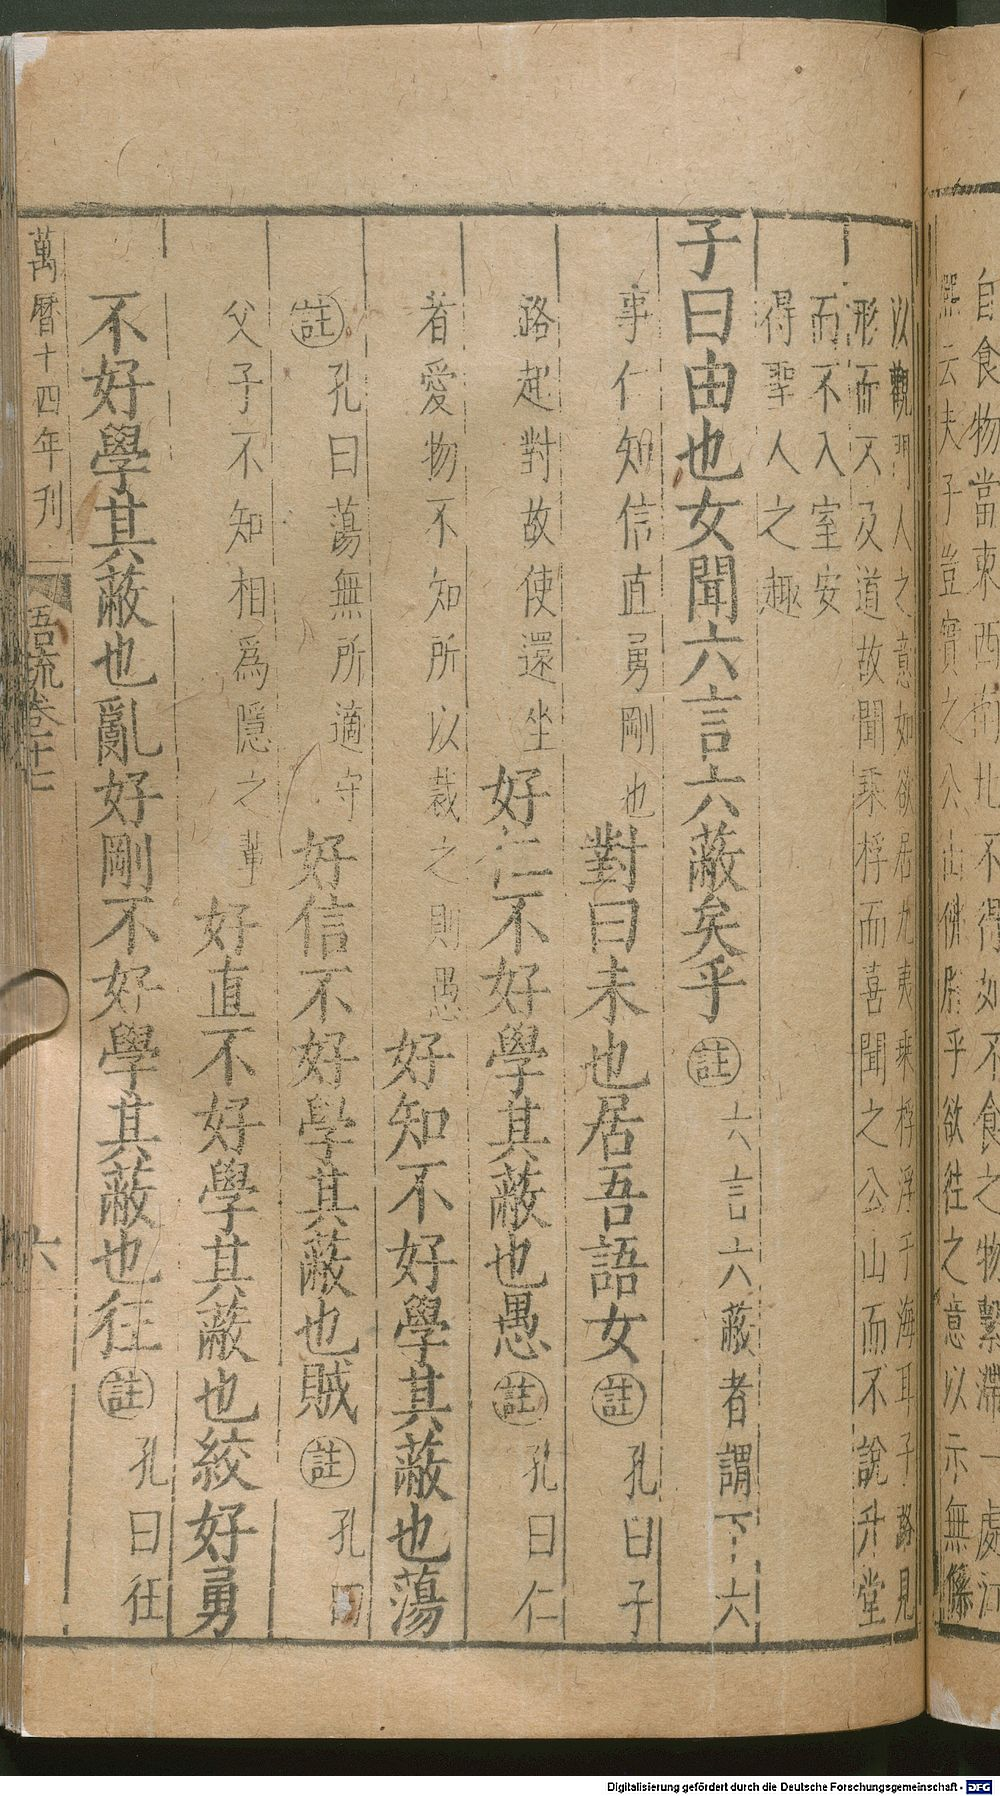 自食物當東西南北不得如不食之物繫滯一處江
熙云夫子豈實之公山佛肸乎欲徃之意以示無係
以觀門人之意如欲居九夷乘桴浮于海耳子路見
形而不及道故聞乘桴而喜聞之公山而不說升堂
而不入室安
得聖人之趣
子曰由也女聞六言六蔽矣乎註六言六蔽者謂下六
事仁知信直勇剛也對曰未也居吾語女註孔曰子
路起對故使還坐好仁不好學其蔽也愚註孔曰仁
者愛物不知所以裁之則愚好知不好學其蔽也蕩
註孔曰蕩無所適守好信不好學其蔽也賊註孔曰
父子不知相爲隱之輩好直不好學其蔽也絞好勇
不好學其蔽也亂好剛不好學其蔽也狂註孔曰狂
萬曆十四年刊 語疏卷十七 六
Digitalisierung gefördert durch die Deutsche Forschungsgemeinschaft - DFG